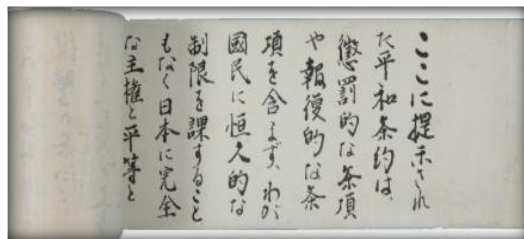 ここに提示され
た平和条約は、
懲罰的な条項
や報復的な条
項を含まず、わが
國民に恒久的な
制限を課すること
もなく日本に完全
な主權と平等と